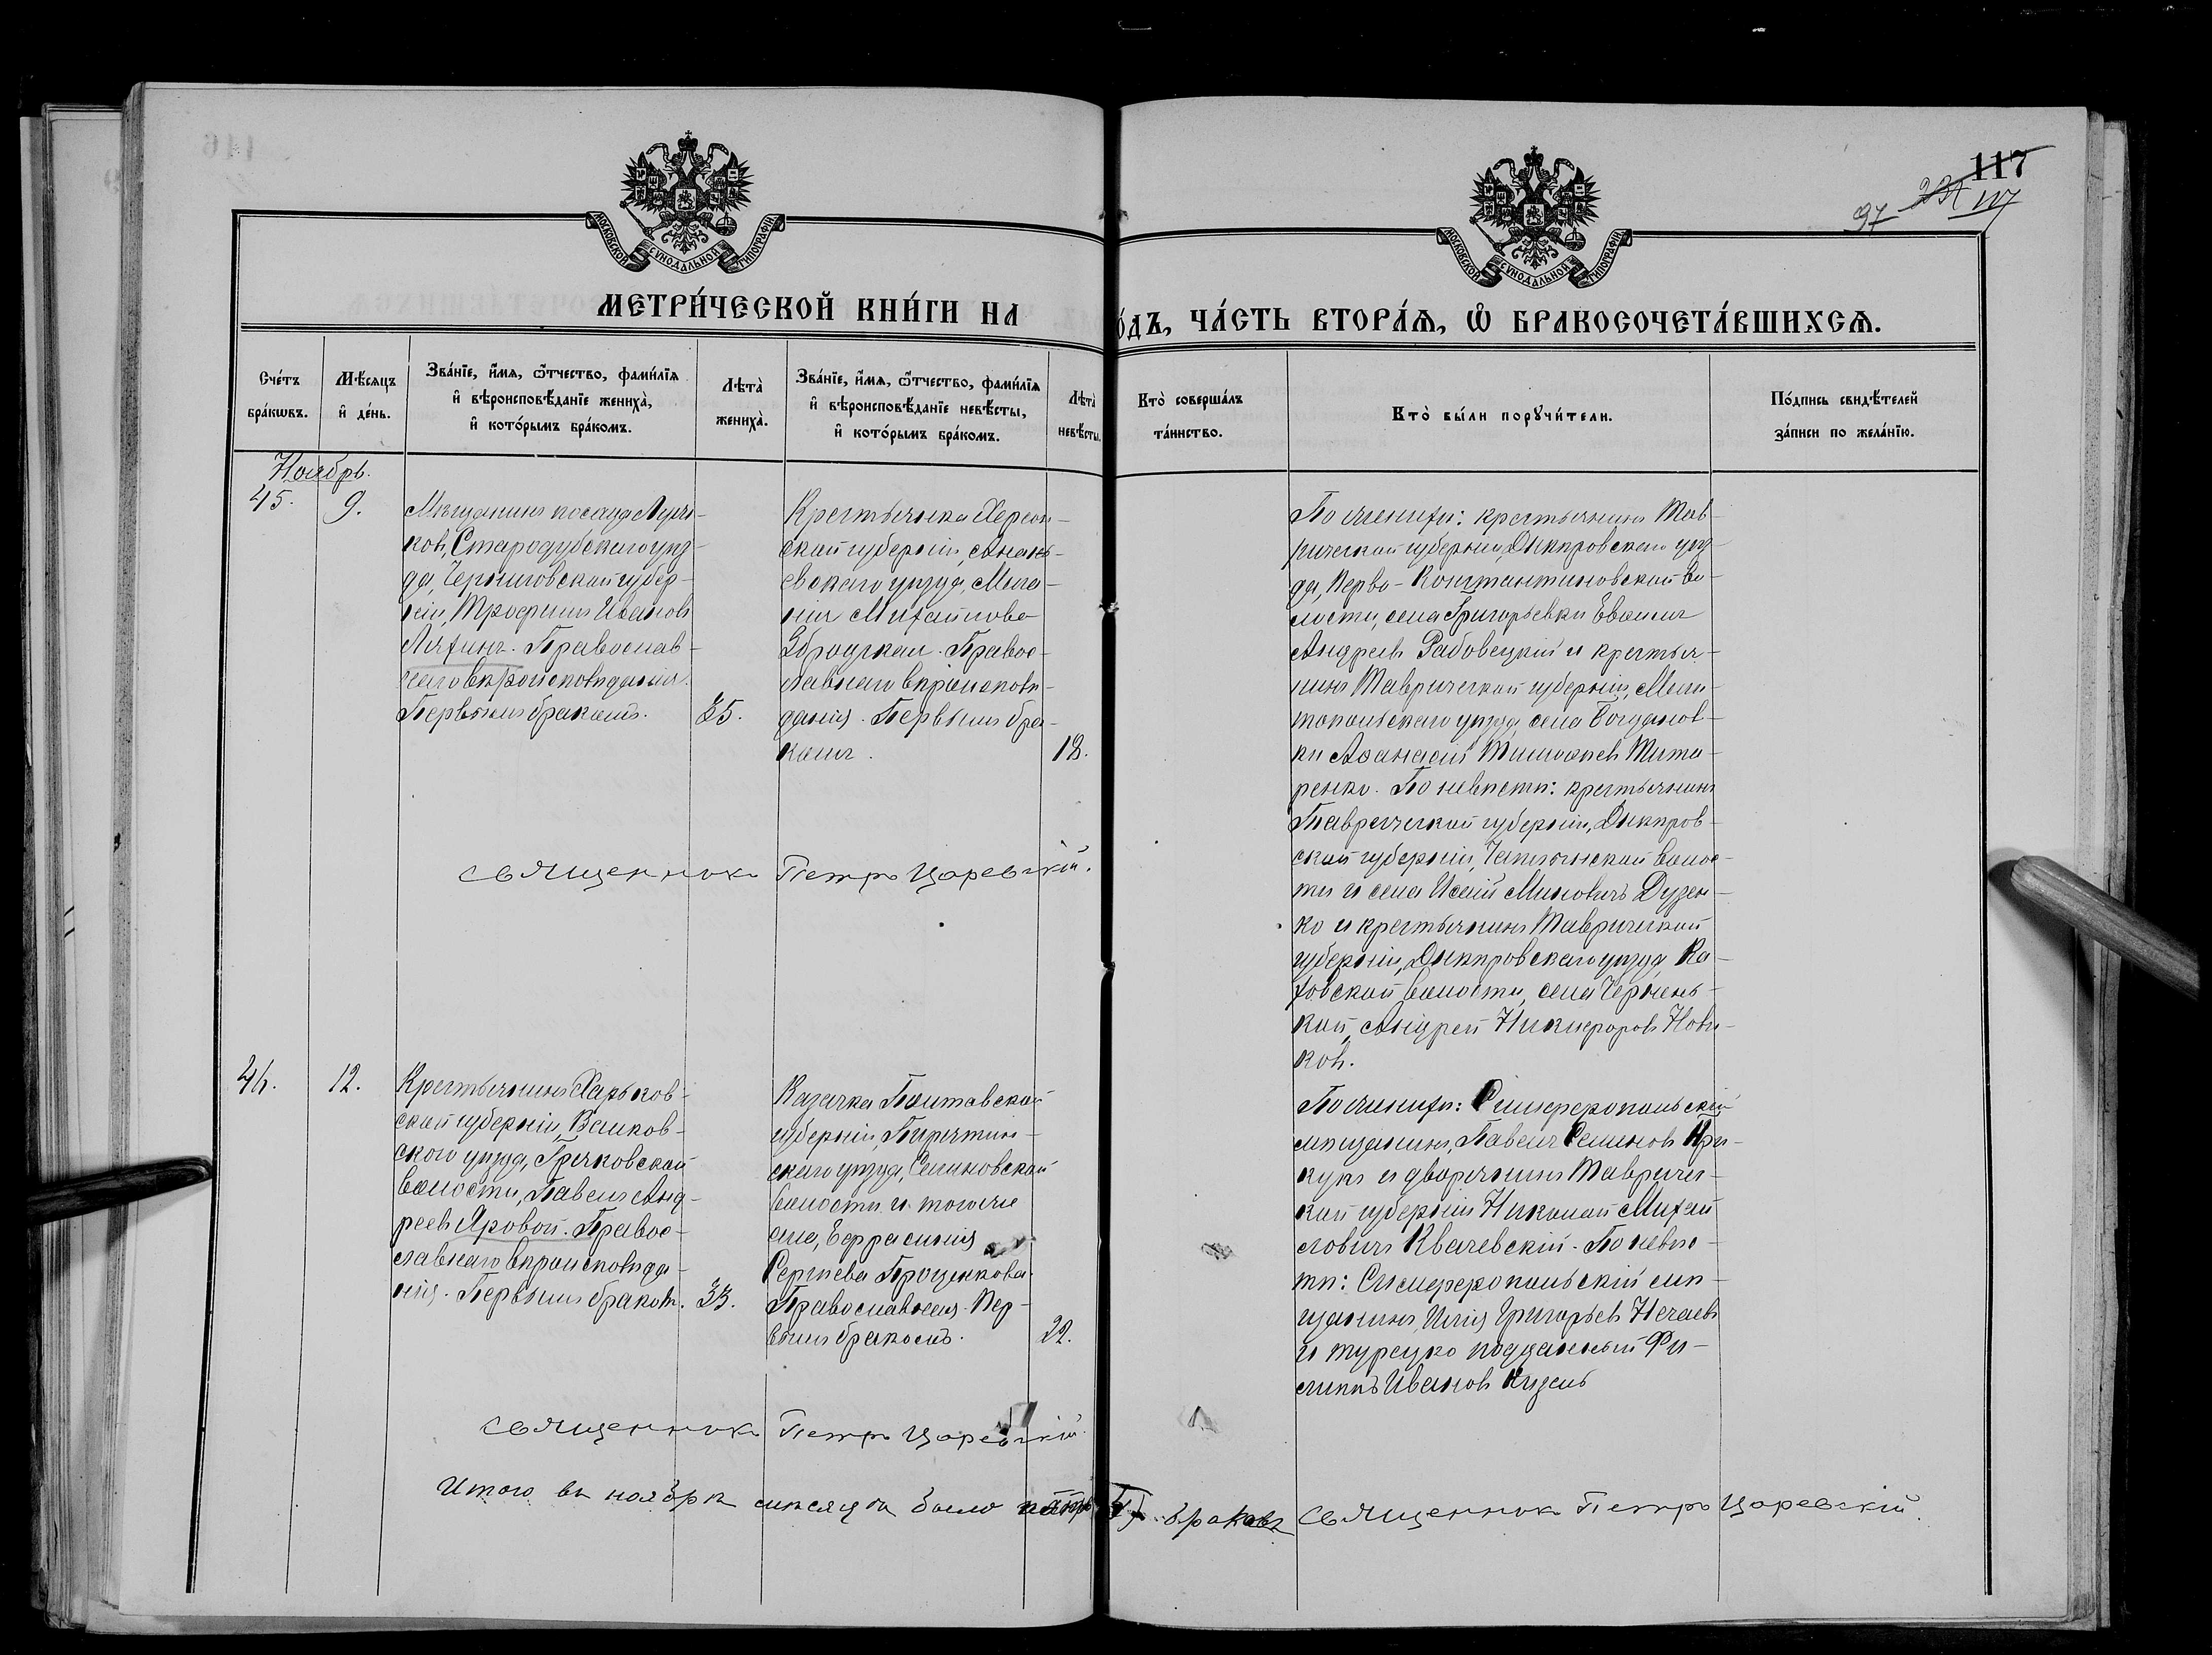 117
97 107
МОСКОВСКОЙ СѴНОДАЛЬНОЙ ТИПОГРАФІИ
МОСКОВСКОЙ СѴНОДАЛЬНОЙ ТИПОГРАФІИ
МЕТРИ́ЧЕСКОЙ КНИ́ГИ НА
О́ДЪ, ЧА́СТЬ ВТОРА́Ѧ, Ѡ҆ БРАКОСОЧЕТА́ВШИХСѦ.
Сче́тъ
бра́кѡвъ.
Мѣ́сяцъ
и҆ де́нь.
Зва́нїе, и҆́мѧ, ѻ҆́тчество, фами́лїѧ
и҆ вѣроисповѣ́данїе жениха̀,
и҆ кото́рымъ бра́комъ.
Лѣта̀
жениха̀.
Зва́нїе, и҆́мѧ, ѻ҆́тчество, фами́лїѧ
и҆ вѣроисповѣ́данїе невѣ́сты,
и҆ кото́рымъ бра́комъ.
Лѣта̀
невѣ́сты.
Кто̀ соверша́лъ
та́инство.
Кто̀ бы́ли порꙋчи́тели.
По́дпись свидѣ́телей
за́писи по жела́нїю.
Ноябрь.
45.
9.
Мѣщанинъ посада Луж-
ков, Стародубскаго уѣз-
да, Черниговской губер-
ніи, Трофимъ Ивановъ
Лихинъ. Православ-
наго вѣроисповѣданія.
Первымъ бракомъ.
35.
Крестьянка Херсон-
ской губерніи, Анань-
евскаго уѣзда, Мела-
нія Михайлова
Збродская. Правос-
лавнаго вѣроисповѣ-
данія. Первымъ бра-
комъ.
18.
По женихѣ: крестьянинъ Тав-
рической губерніи, Днѣпровскаго уѣз-
да, Перво-Константиновской во-
лости, села Григорьевки Евдоким
Андреевъ Рабовецкій и крестья-
нинъ Таврической губерніи, Мели-
топольскаго уѣзда, села Богданов-
ки Аѳанасій Тимоѳеевъ Тита-
ренко. По невѣстѣ: крестьянинъ
Таврической губерніи, Днѣпров-
ской губерніи, Чаплинской волос-
ти и села Исаій Миновичъ Дузен-
ко и крестьянинъ Таврической
губерніи, Днѣпровскаго уѣзда, Ка-
ховской волости, села Чернень-
кой, Андрей Никифоровъ Нови-
ковъ.
священникъ Петръ Царевскій.
46.
12.
Крестьянинъ Харьков-
ской губерніи, Валков-
ского уѣзда, Гряковской
волости, Павелъ Анд-
реевъ Яровой. Правос-
лавнаго вѣроисповѣда-
нія. Первымъ бракомъ.
33.
Казачка Полтавской
губерніи, Пирятин-
скаго уѣзда, Сасиновской
волости и того-же
села, Ефросинія
Сергѣева Проценкова.
Православная. Пер-
вымъ бракомъ.
22.
По женихѣ: Симферопольскій
мѣщанинъ, Павелъ Семеновъ Кри-
кунъ и дворянинъ Тавричес-
кой губерніи Николай Михай-
ловичъ Квачевскій. По невѣс-
тѣ: Симферопольскій мѣ-
щанинъ, Илія Григорьевъ Нечаевъ
и турецко подданный Фи-
липпъ Ивановъ Кизель
священникъ Петръ Царевскій.
Итого въ ноябрѣ мѣсяцѣ было браковъ священникъ Петръ Царевскій.